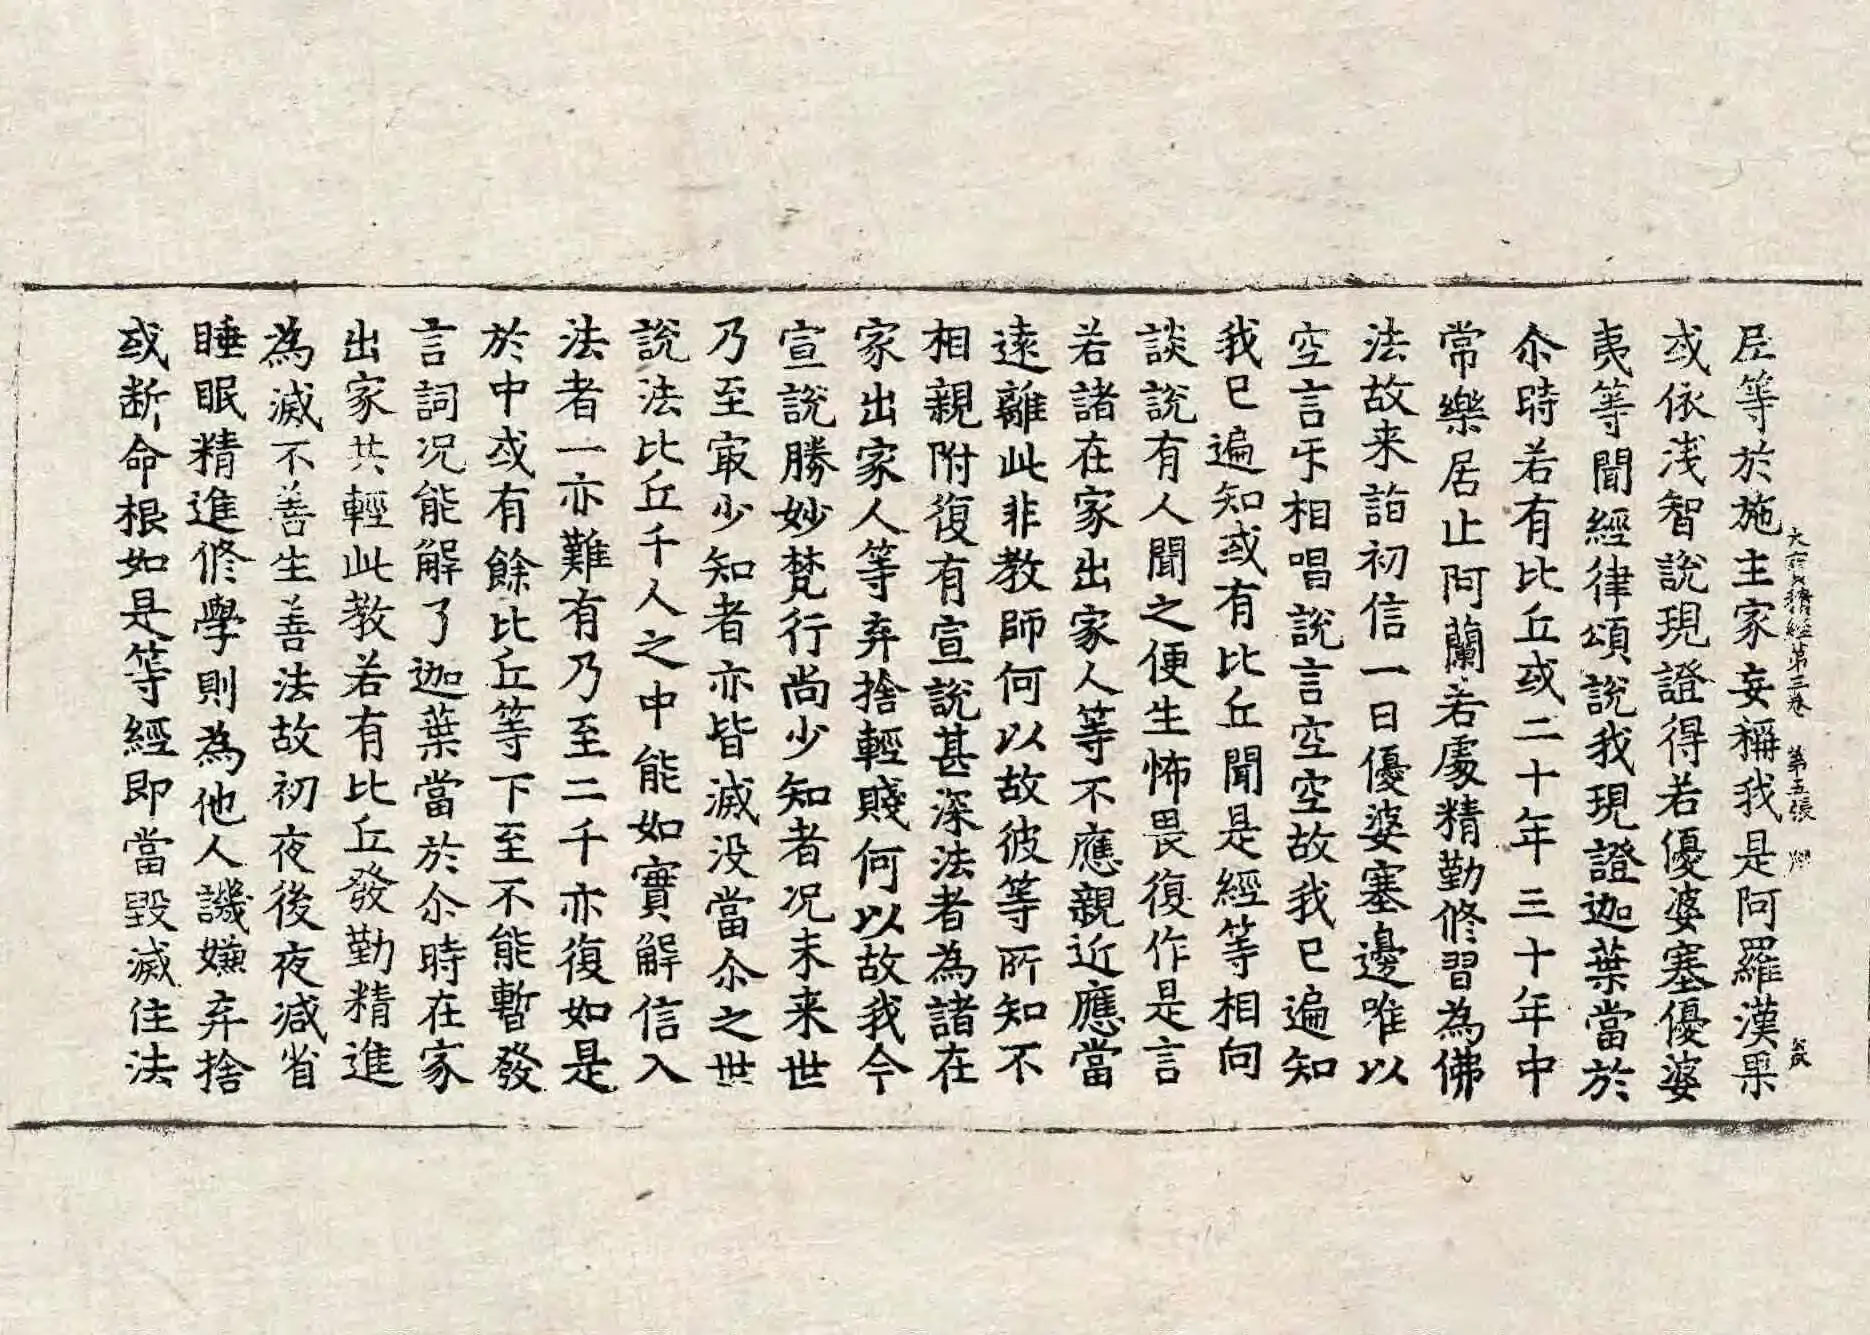 大寶積經第三卷 第五張
尼等於施主家妄稱我是阿羅漢果
或依浅智說現證得若優婆塞優婆
夷等聞經律頌說我現證迦葉當於
尒時若有比丘或二十年三十年中
常樂居止阿蘭若處精勤修習為佛
法故来詣初信一日優婆塞邊唯以
空言㸦相唱說言空空故我已遍知
我已遍知或有比丘聞是經等相向
談說有人聞之便生怖畏復作是言
若諸在家出家人等不應親近應當
遠離此非教師何以故彼等所知不
相親附復有宣說甚深法者為諸在
家出家人等弃捨輕賤何以故我今
宣說勝妙梵行尚少知者况未来世
乃至㝡少知者亦皆滅没當尒之世
說法比丘千人之中能如實解信入
法者一亦難有乃至二千亦復如是
於中或有餘比丘等下至不能暫發
言詞况能解了迦葉當於尒時在家
出家共輕此教若有比丘發勤精進
為滅不善生善法故初夜後夜減省
睡眠精進修學則為他人譏嫌弃捨
或断命根如是等經即當毀滅住法